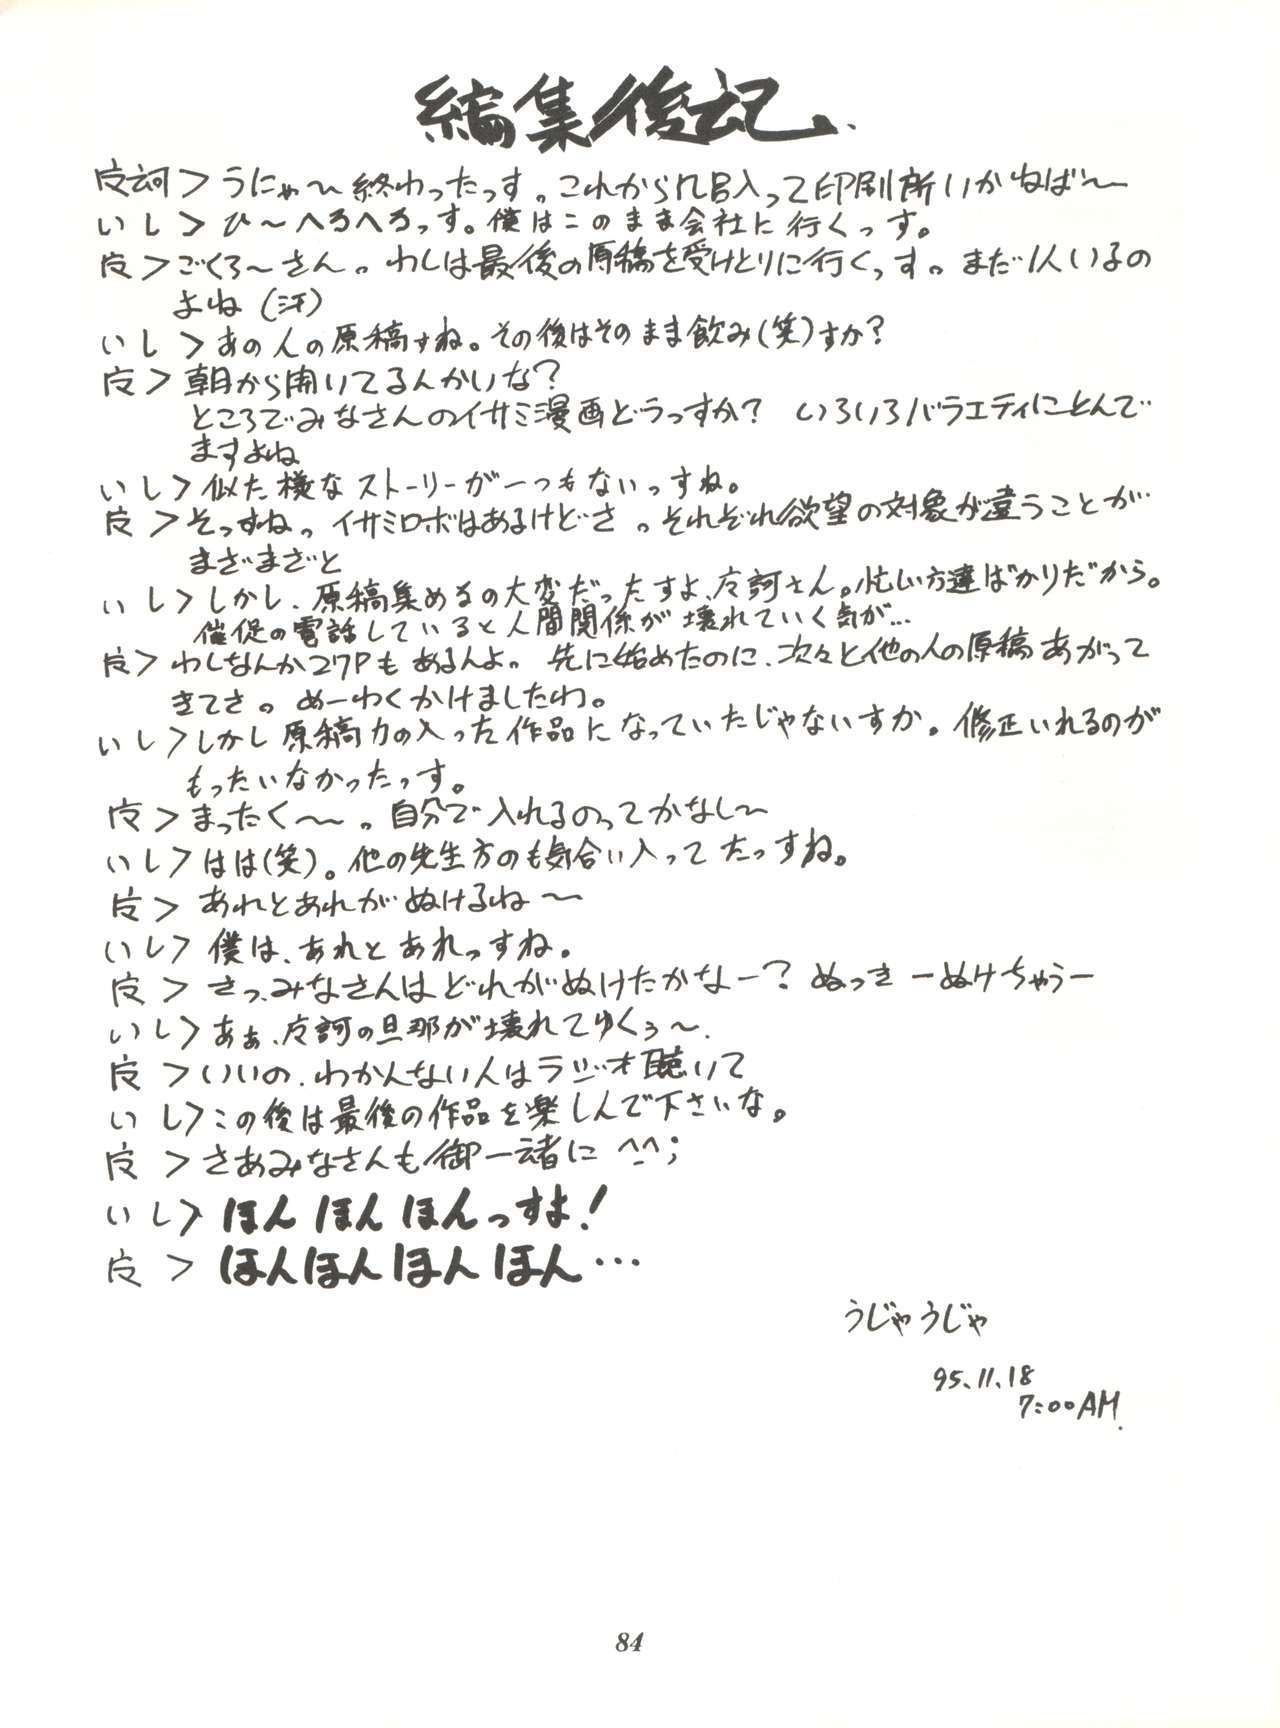 編集後記
戌訶＞うにゃ〜終わったっす。これから風呂入って印刷所いかねば〜
いし＞ひ〜へろへろっす。僕はこのまま会社に行くっす。
戌＞ごくろ〜さん。わしは最後の原稿を受けとりに行くっす。まだ1人いるの
よね(汗)
いし＞あの人の原稿すね。その後はそのまま飲み(笑)すか？
戌＞朝から開いてるんかいな？
ところでみなさんのイサミ漫画どうっすか？ いろいろバラエティにとんで
ますよね
いし＞似た様なストーリーが一つもないっすね。
戌＞そっすね。イサミロボはあるけどさ。それぞれ欲望の対象が違うことが
まざまざと
いし＞しかし、原稿集めるの大変だったすよ、戌訶さん。忙しい方達ばかりだから。
催促の電話していると人間関係が壊れていく気が…
戌＞わしなんか27Pもあるんよ。先に始めたのに、次々と他の人の原稿あがって
きてさ。めーわくかけましたわ。
いし＞しかし原稿力の入った作品になっていたじゃないすか。修正いれるのが
もったいなかったっす。
戌＞まったく〜〜。自分で入れるのってかなし〜
いし＞はは(笑)。他の先生方のも気合い入ってたっすね。
戌＞あれとあれがぬけるね〜
いし＞僕は、あれとあれっすね。
戌＞さっ、みなさんはどれがぬけたかなー？ぬっきーぬけちゃうー
いし＞あぁ、戌訶の旦那が壊れてゆくぅ〜.
戌＞いいの、わかんない人はラジオ聴いて
いし＞この後は最後の作品を楽しんで下さいな。
戌＞さあみなさんも御一緒に ^_^;
いし＞ほんほんほんっすよ！
戌＞ほんほんほんほん…
うじゃうじゃ
95.11.18
7:00AM.
84